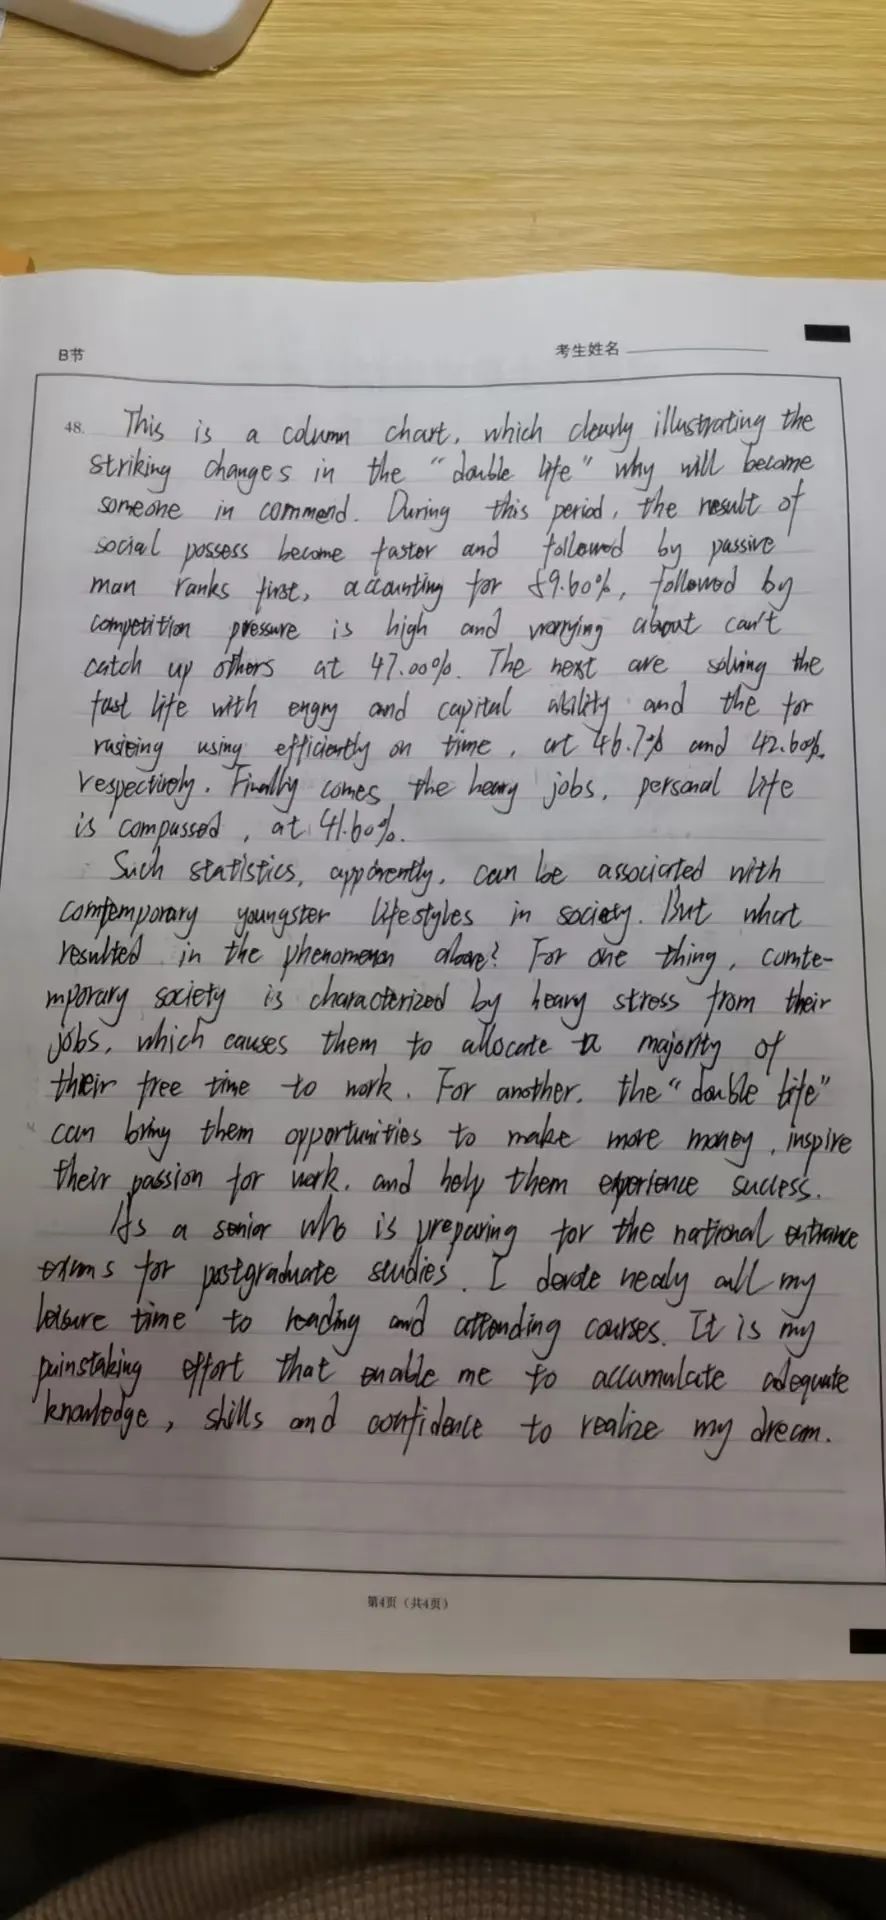 B节 考生姓名
48. This is a column chart, which clearly illustrating the
striking changes in the "double life" why will become
someone in commend. During this period, the result of
social possess become faster and followed by passive
man ranks first, accounting for 59.60%, followed by
competition pressure is high and worrying about can't
catch up others at 47.00%. The next are solving the
fast life with engry and capital ability and the for
using efficiently on time, at 46.7% and 42.60%,
respectively. Finally comes the heavy jobs, personal life
is compassed, at 41.60%.
Such statistics, apparently, can be associated with
comtemporary youngster lifestyles in society. But what
resulted in the phenomenon above? For one thing, comte-
mporary society is characterized by heavy stress from their
jobs, which causes them to allocate a majority of
their free time to work. For another, the "double life"
can bring them opportunities to make more money, inspire
their passion for work, and help them experience success.
As a senior who is preparing for the national entrance
exams for postgraduate studies. I devote nealy all my
leisure time to reading and attending courses. It is my
painstaking effort that enable me to accumulate adequate
knowledge, skills and confidence to realize my dream.
第4页（共4页）